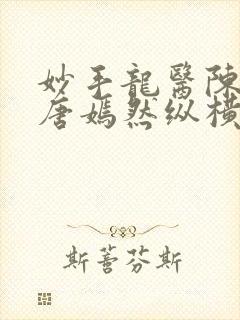 妙手龍醫陳
唐嫣然纵横
斯薈芬斯